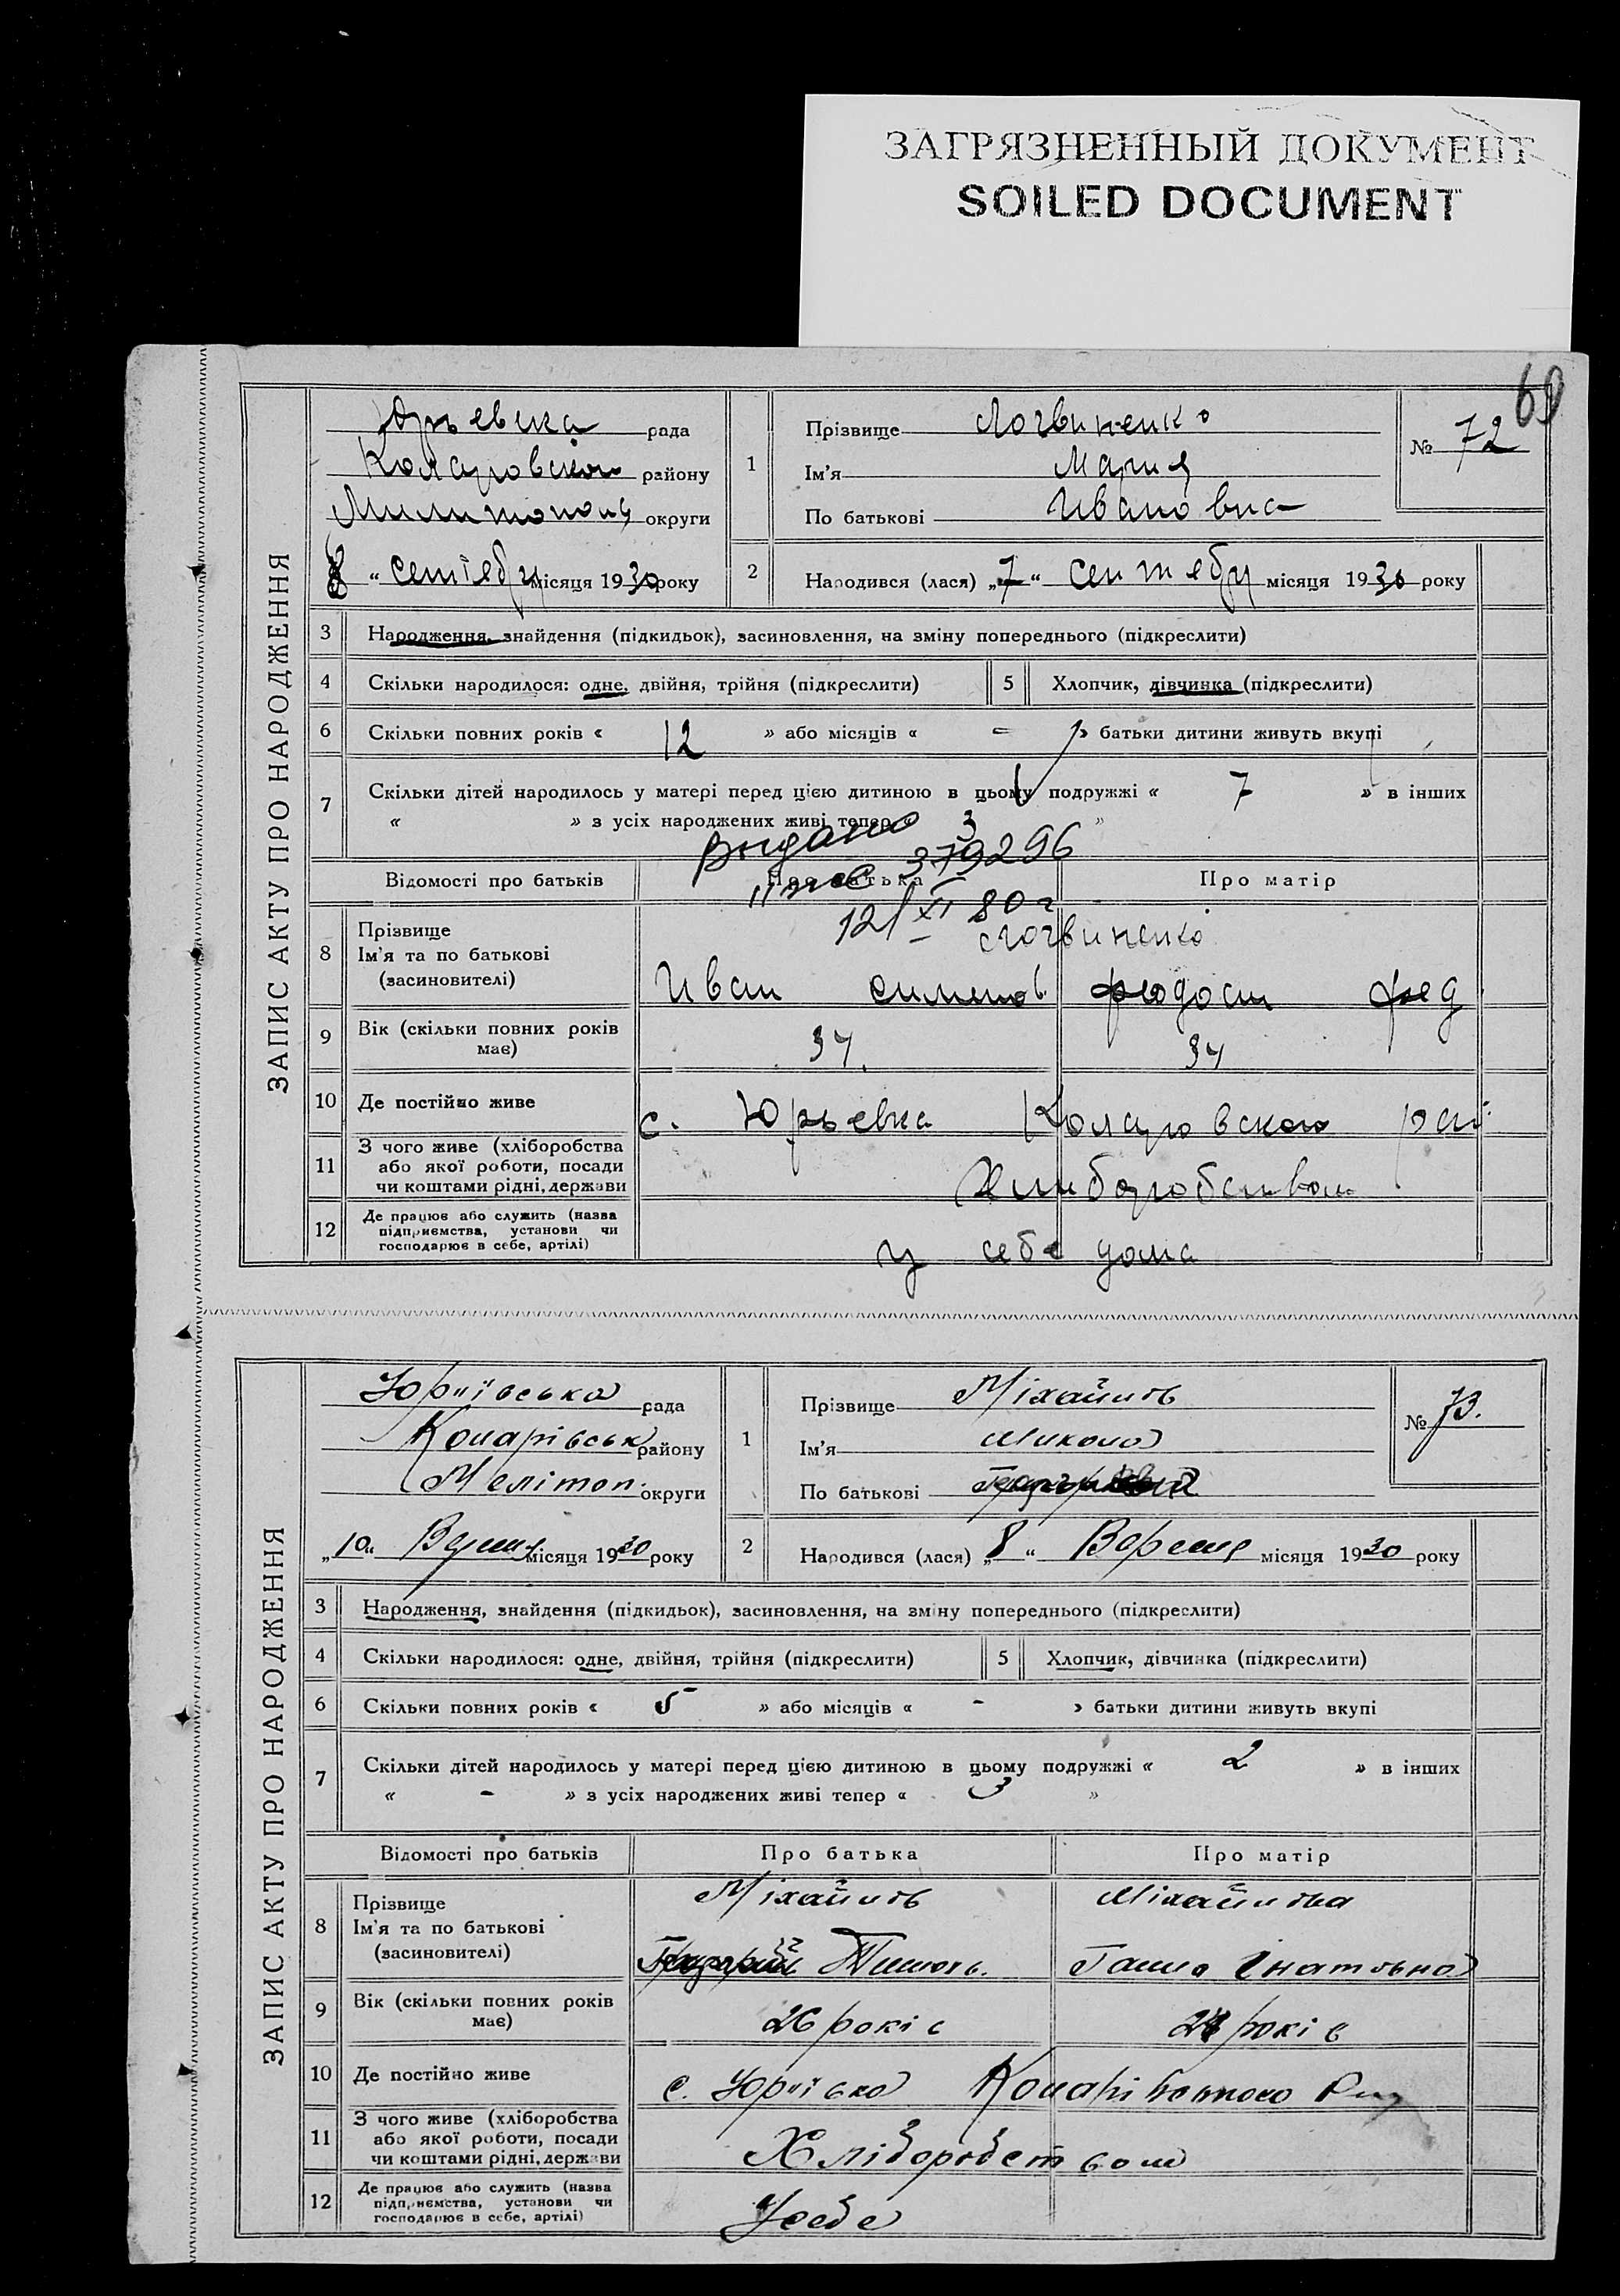 ЗАГРЯЗНЕННЫЙ ДОКУМЕНТ
SOILED DOCUMENT
69
ЗАПИС АКТУ ПРО НАРОДЖЕННЯ
Юрьевска рада
Коларовского району
Милитополь округи
8 " сентебр місяця 1930 року
1
Прізвище Логвиненко
Ім'я Мария
По батькові Ивановна
№ 72
2 Народився (лася) „7“ сентебр місяця 1930 року
3 Народження, знайдення (підкидьок), засиновлення, на зміну попереднього (підкреслити)
4 Скільки народилося: одне, двійня, трійня (підкреслити) 5 Хлопчик, дівчинка (підкреслити)
6 Скільки повних років « 12 » або місяців « = » батьки дитини живуть вкупі
7 Скільки дітей народилось у матері перед цією дитиною в цьому подружжі « 7 » в інших
« » з усіх народжених живі тепер « 3 »
Выдано
379296
12/XI 80 г
Відомості про батьків Про батька Про матір
8 Прізвище
Ім'я та по батькові
(засиновителі)
Логвиненко
Иван Симонов Феодосия Фед
9 Вік (скільки повних років має) 34 34
10 Де постійно живе с. Юрьевка Коларовского рай
11 З чого живе (хліборобства
або якої роботи, посади
чи коштами рідні, держави
Хлиборобством
12 Де працює або служить (назва
підприємства, установи чи
господарює в себе, артілі)
у себе дома
ЗАПИС АКТУ ПРО НАРОДЖЕННЯ
Юріївська рада
Коларівськ району
Меліtоп. округи
„10“ Верес місяця 1930 року
1
Прізвище Міхайлов
Ім'я Микола
По батькові
№ 73.
2 Народився (лася) „8“ Вересня місяця 1930 року
3 Народження, знайдення (підкидьок), засиновлення, на зміну попереднього (підкреслити)
4 Скільки народилося: одне, двійня, трійня (підкреслити) 5 Хлопчик, дівчинка (підкреслити)
6 Скільки повних років « 5 » або місяців « - » батьки дитини живуть вкупі
7 Скільки дітей народилось у матері перед цією дитиною в цьому подружжі « 2 » в інших
« - » з усіх народжених живі тепер « 3 »
Відомості про батьків Про батька Про матір
8 Прізвище
Ім'я та по батькові
(засиновителі)
Міхайлов Міхайлова
Ганна Гнатовна
9 Вік (скільки повних років має) 26 років 24 років
10 Де постійно живе с. Юріївка Коларівського
11 З чого живе (хліборобства
або якої роботи, посади
чи коштами рідні, держави
Хліборобством
12 Де працює або служить (назва
підприємства, установи чи
господарює в себе, артілі)
У себе